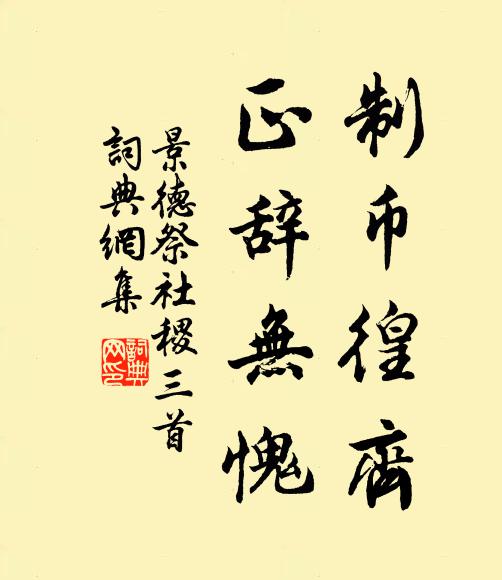 制币徨齊
正辞無愧
景德祭社稷三首
詞典網集
詞典
网印